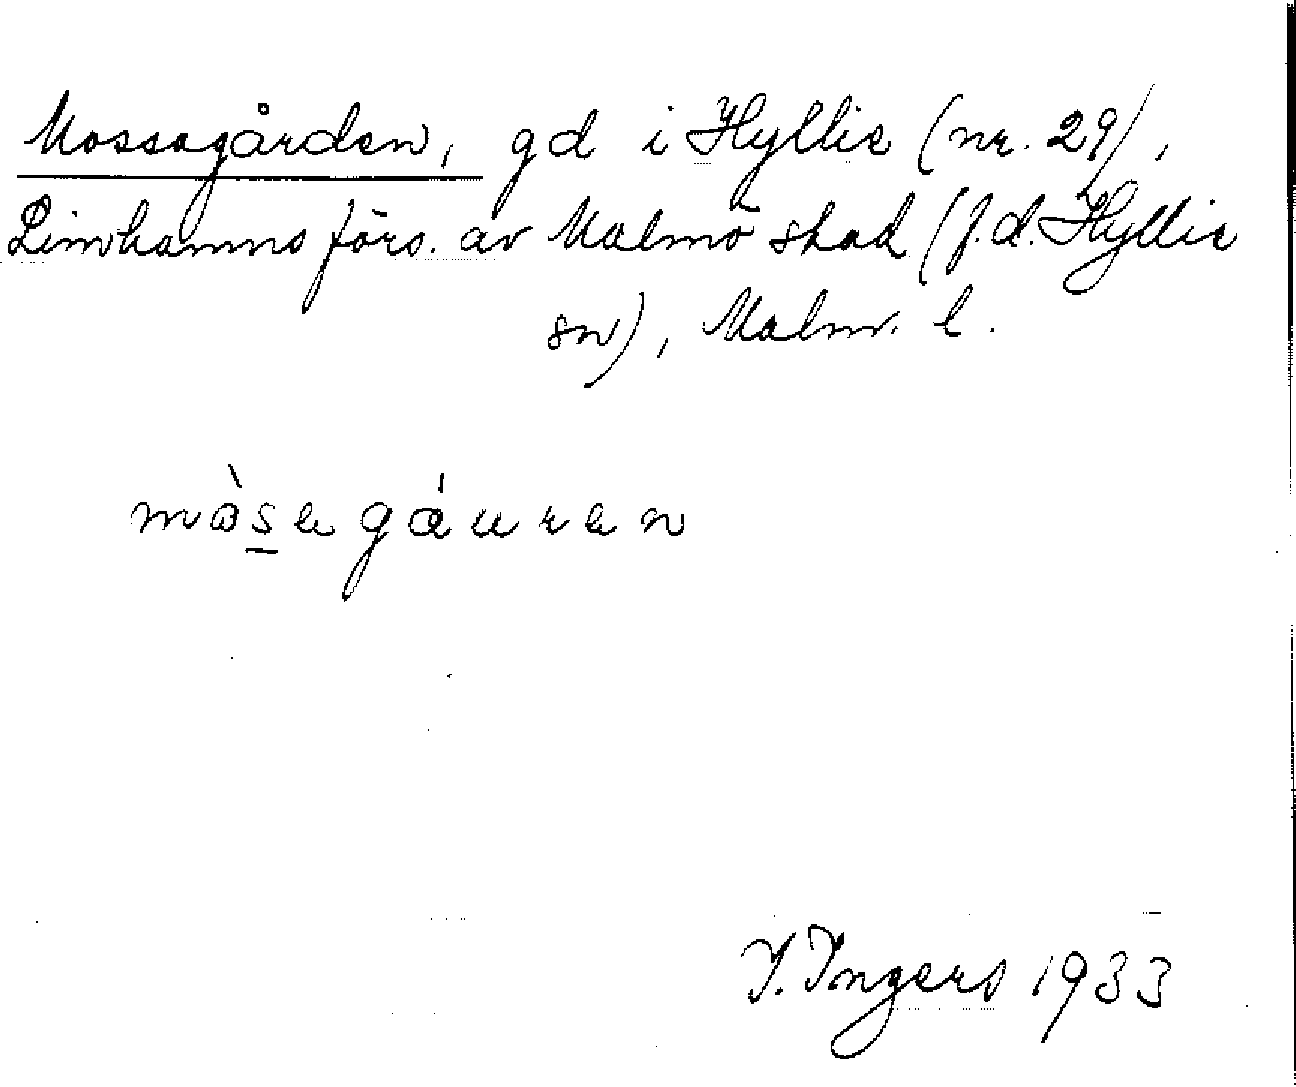 Mossagården, gd i Hyllie (nr. 29),
Limhamns förs. av Malmö stad (f.d. Hyllie
sn), Malm. l.
måse gáuren
I. Ingers 1933